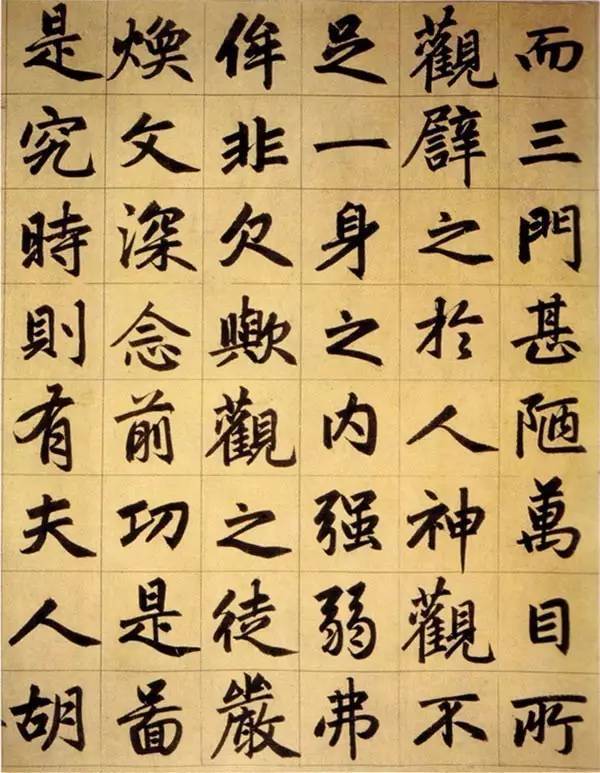 而三門甚陋萬目所
觀譬之於人神觀不
足一身之内强弱弗
侔非欠歟觀之徒嚴
煥文深念前功是啚
是究時則有夫人胡